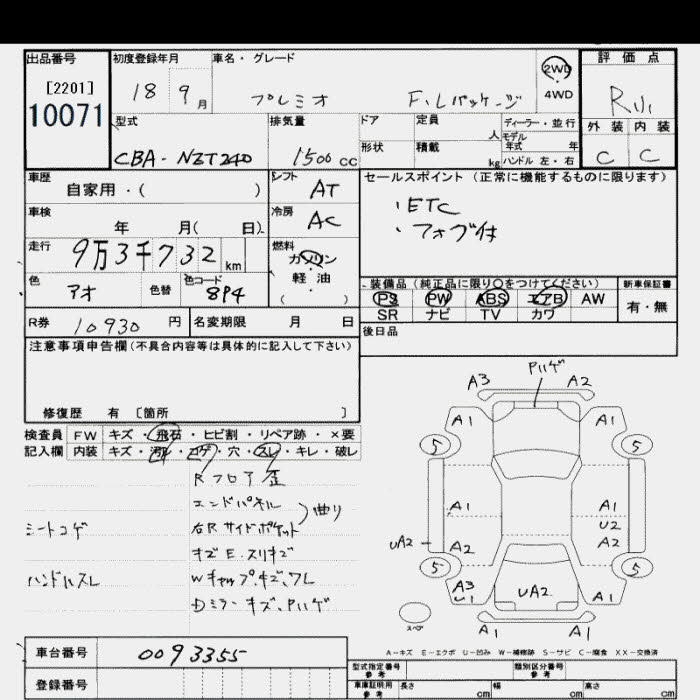 出品番号
[2201]
10071
初度登録年月
18 9月
車名・グレード
プレミオ F.Lパッケージ
2WD
4WD
評価点
R
外装 内装
C C
型式
CBA-NZT240
排気量
1500 cc
ドア 定員 人
形状 積載 kg
ディーラー・並行
モデル年式 年
ハンドル 左・右
車歴
自家用・( )
シフト AT
車検
年 月( 日)
冷房 AC
走行
9万3千732 km
燃料
ガソリン
・
軽油
( )
色 アオ 色替
色コード 8P4
セールスポイント(正常に機能するものに限ります)
・ETC
・フォグ付
装備品(純正品に限り○をつけてください)
PS PW ABS エアB AW
SR ナビ TV カワ
新車保証書
有・無
後日品
R券 10930 円
名変期限 月 日
注意事項申告欄(不具合内容等は具体的に記入して下さい)
修復歴 有 〔箇所 〕
検査員 FW キズ・飛石・ヒビ割・リペア跡・×要
記入欄 内装 キズ・汚れ・コゲ・穴・スレ・キレ・破レ
Rフロア歪
エンドパネル
シートコゲ 右Rサイドポケット 曲り
キズE.スリキズ
ハンドルスレ Wキャップキズ,ワレ
Dミラーキズ,Pハゲ
Pハゲ
A3 A2
A1 A1
5 5
A1 A1
U2
UA2 A2 A2
5 5
A3 U1 UA2 A1
スペア
A1 A1
A−キズ E−エクボ U−凹み W−補修跡 S−サビ C−腐食 XX−交換済
車台番号 0093355
登録番号
型式指定番号 参考
類別区分番号 参考
車庫証明用 参考 長さ cm 幅 cm 高さ cm